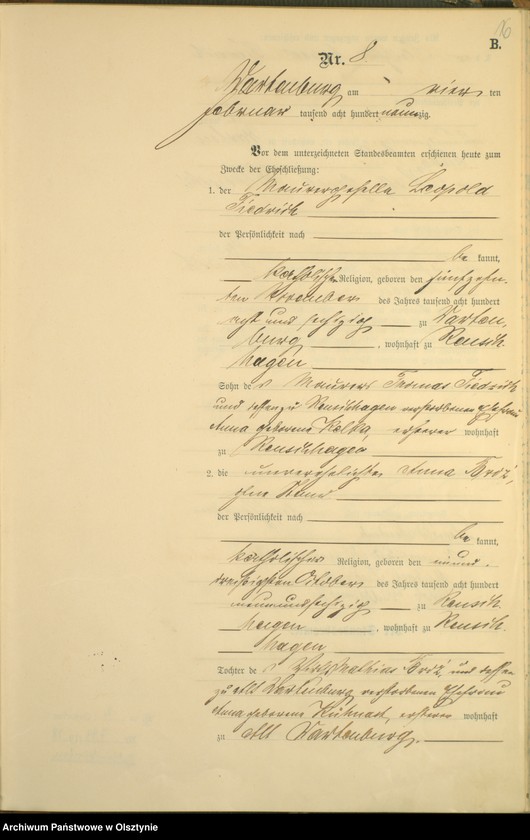 B.
Nr. 8.
Wartenburg am vier ten
Februar tausend acht hundert neunzig.
Vor dem unterzeichneten Standesbeamten erschienen heute zum
Zwecke der Eheschließung:
1. der Maurergeselle Leopold
Tiedrich
der Persönlichkeit nach
be kannt,
katholischer Religion, geboren den fünfzehn-
ten November des Jahres tausend acht hundert
acht und sechzig zu Warten-
burg, wohnhaft zu Reusch-
hagen
Sohn des Maurers Thomas Tiedrich
und dessen zu Reuschhagen verstorbenen Ehefrau
Anna geborene, ersterer wohnhaft
zu Reuschhagen
2. die unverehelichte Anna
der Persönlichkeit nach
be kannt,
katholischer Religion, geboren den einund-
dreißigsten October des Jahres tausend acht hundert
neunundsechzig zu Reusch-
hagen, wohnhaft zu Reusch-
hagen
Tochter des und dessen
zu Alt Wartenburg verstorbenen Ehefrau
Anna geborene, ersterer wohnhaft
zu Alt Wartenburg.
Archiwum Państwowe w Olsztynie